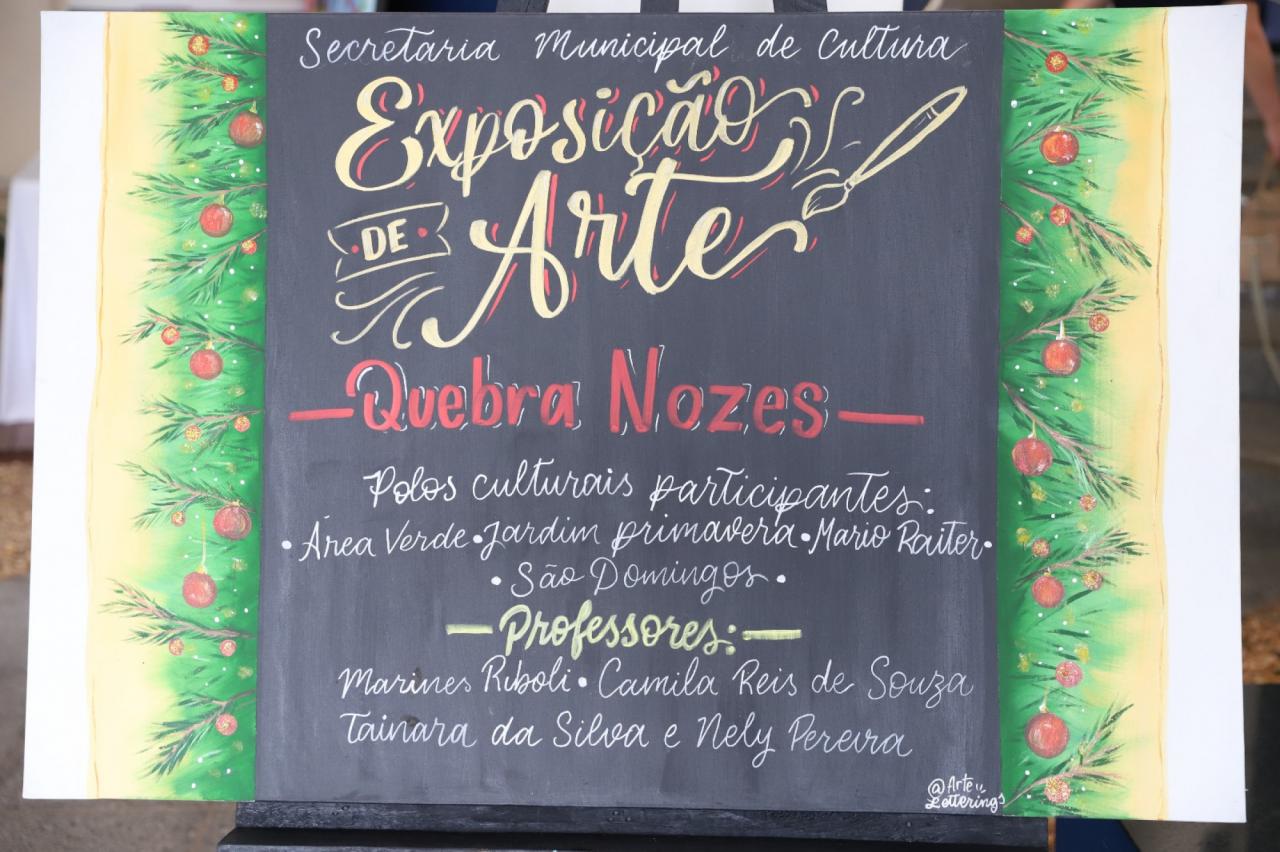 Secretaria Municipal de Cultura
Exposição
DE Arte
Quebra Nozes
Polos culturais participantes:
• Área Verde • Jardim primavera • Mario Raiter •
• São Domingos •
Professores:
Marines Riboli • Camila Reis de Souza
Tainara da Silva e Nely Pereira
@Arte
Letterings